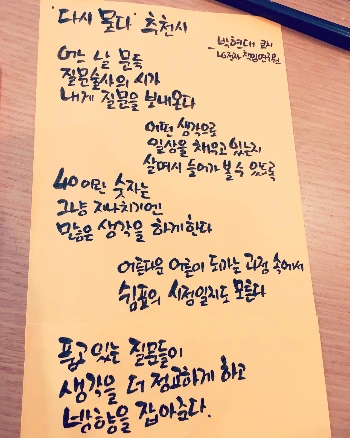 '다시 묻다' 추천시
- 박현대 코치
LG전자 책임연구원
어느 날 문득
질문술사의 시가
내게 질문을 보내온다
어떤 생각으로
일상을 채우고 있는지
살며시 들어가 볼 수 있도록
40이란 숫자는
그냥 지나치기엔
많은 생각을 하게 한다
어른다운 어른이 되가는 과정 속에서
쉼표의 시점일지도 모른다
품고 있는 질문들이
생각을 더 정교하게 하고
방향을 잡아준다.